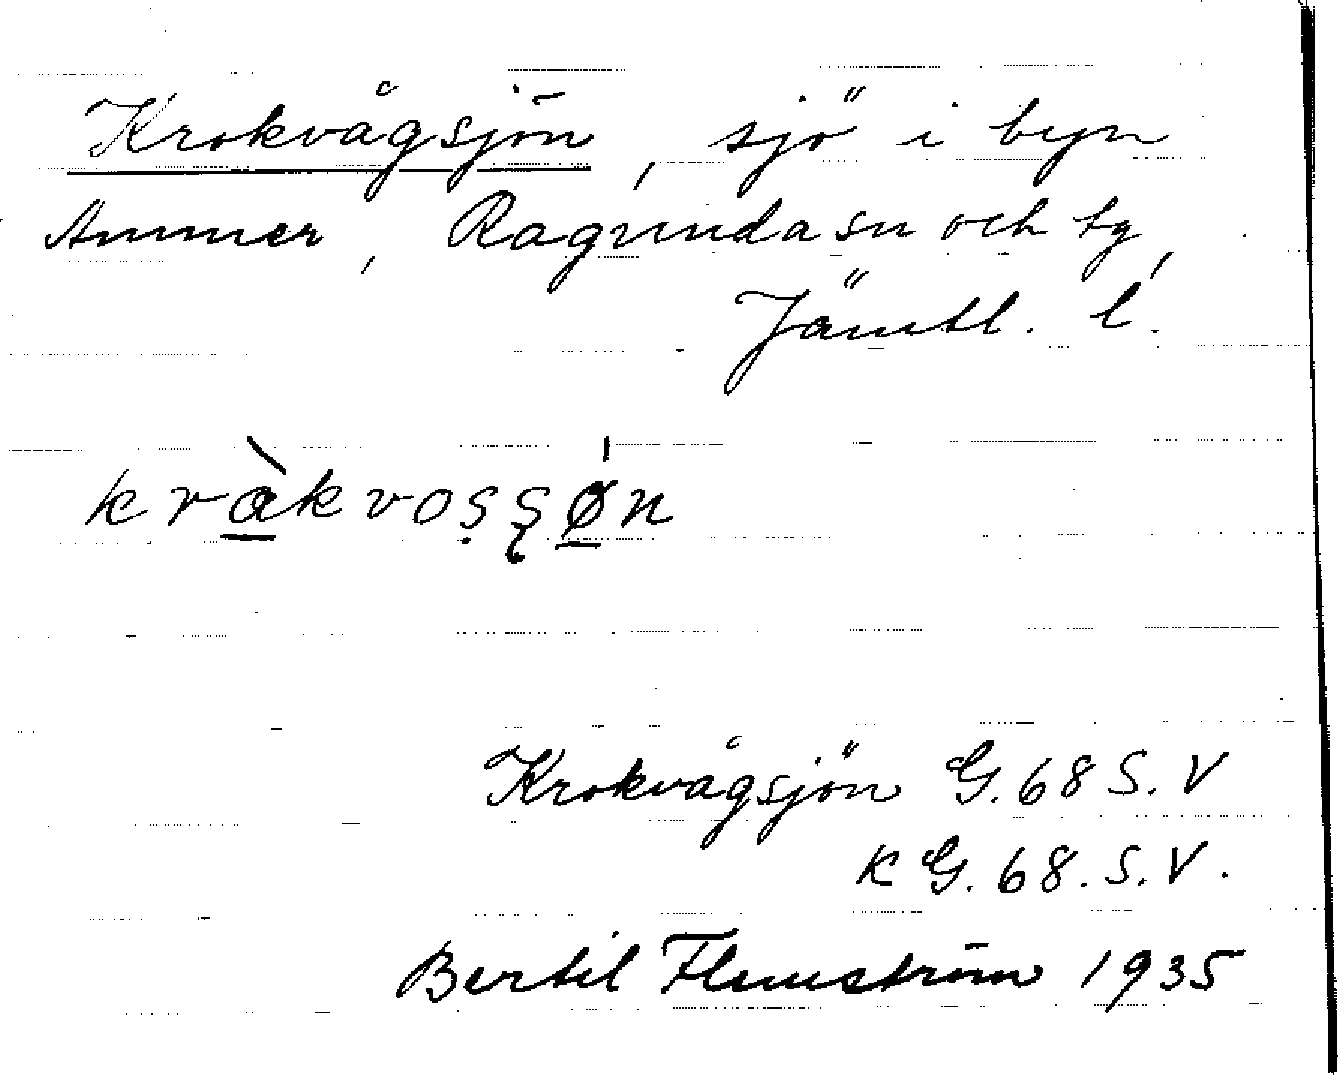 Krokvågsjön, sjö i byn
Ammer, Ragunda sn och tg,
Jämtl. l.
kràkvoṣṣǿn
Krokvågsjön G. 68 S. V
K G. 68. S. V.
Bertil Flemström 1935